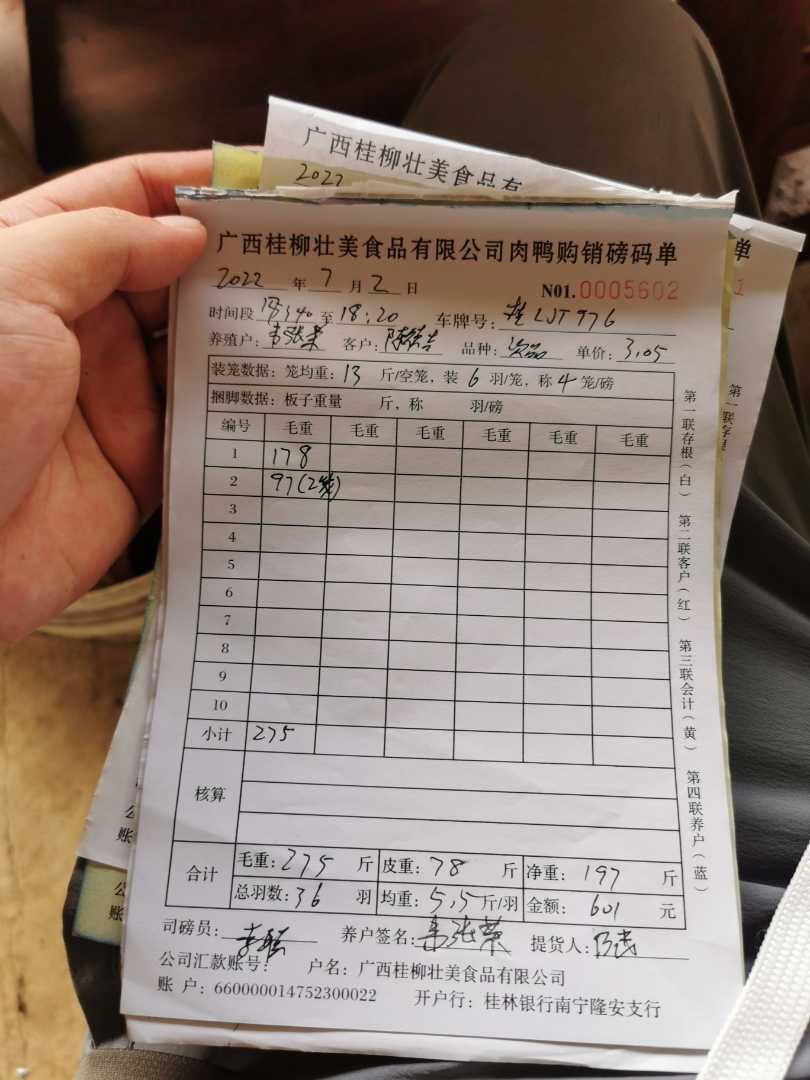 广西桂柳壮美食品有
2022
广西桂柳壮美食品有限公司肉鸭购销磅码单
2022 年 7 月 2 日 N01.0005602
时间段 17:40 至 18:20 车牌号: 桂LJT976
养殖户: 韦张荣 客户: 品种: 次品 单价: 3.05
装笼数据: 笼均重: 13 斤/空笼, 装 6 羽/笼, 称 4 笼/磅
捆脚数据: 板子重量 斤, 称 羽/磅
编号 毛重 毛重 毛重 毛重 毛重 毛重
1 178
2 97(2笼)
3
4
5
6
7
8
9
10
小计 275
核算
合计 毛重: 275 斤 皮重: 78 斤 净重: 197 斤
总羽数: 36 羽 均重: 5.5 斤/羽 金额: 601 元
司磅员: 养户签名: 韦张荣 提货人:
公司汇款账号: 户名: 广西桂柳壮美食品有限公司
账 户: 660000014752300022 开户行: 桂林银行南宁隆安支行
第一联存根(白) 第二联客户(红) 第三联会计(黄) 第四联养户(蓝)
单
1
第一联存根
公
账
公
账